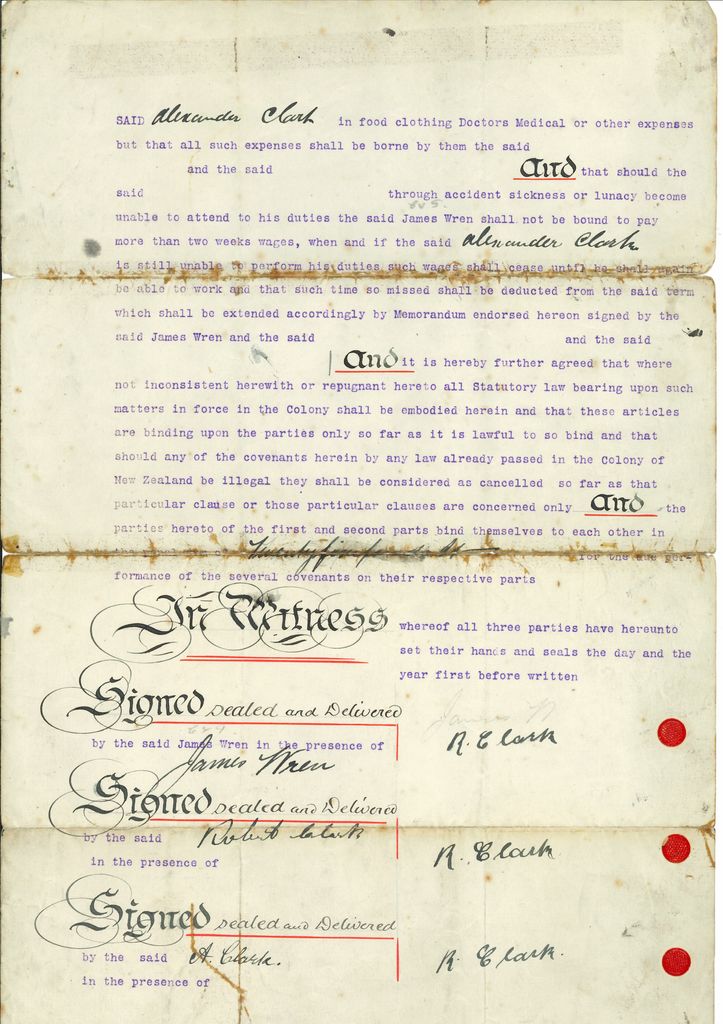 SAID Alexander Clark in food clothing Doctors Medical or other expenses
but that all such expenses shall be borne by them the said
and the said And that should the
said through accident sickness or lunacy become
unable to attend to his duties the said James Wren shall not be bound to pay
more than two weeks wages, when and if the said Alexander Clark
is still unable to perform his duties such wages shall cease until he shall again
be able to work and that such time so missed shall be deducted from the said term
which shall be extended accordingly by Memorandum endorsed hereon signed by the
said James Wren and the said and the said
And it is hereby further agreed that where
not inconsistent herewith or repugnant hereto all Statutory law bearing upon such
matters in force in the Colony shall be embodied herein and that these articles
are binding upon the parties only so far as it is lawful to so bind and that
should any of the covenants herein by any law already passed in the Colony of
New Zealand be illegal they shall be considered as cancelled so far as that
particular clause or those particular clauses are concerned only And the
parties hereto of the first and second parts bind themselves to each other in
the for the due per-
formance of the several covenants on their respective parts
In Witness whereof all three parties have hereunto
set their hands and seals the day and the
year first before written
Signed sealed and Delivered
by the said James Wren in the presence of
James Wren
R. Clark
Signed sealed and Delivered
by the said Robert Clark
in the presence of
R. Clark
Signed sealed and Delivered
by the said A. Clark.
in the presence of
R. Clark.